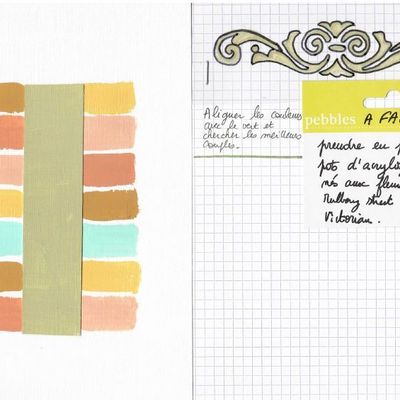 Aligner les couleurs
avec le vert et
chercher les meilleurs
couples.
pebbles A FA
prendre en p
pots d'acryli
nés aux fleu
Mulberry street
Victorian.